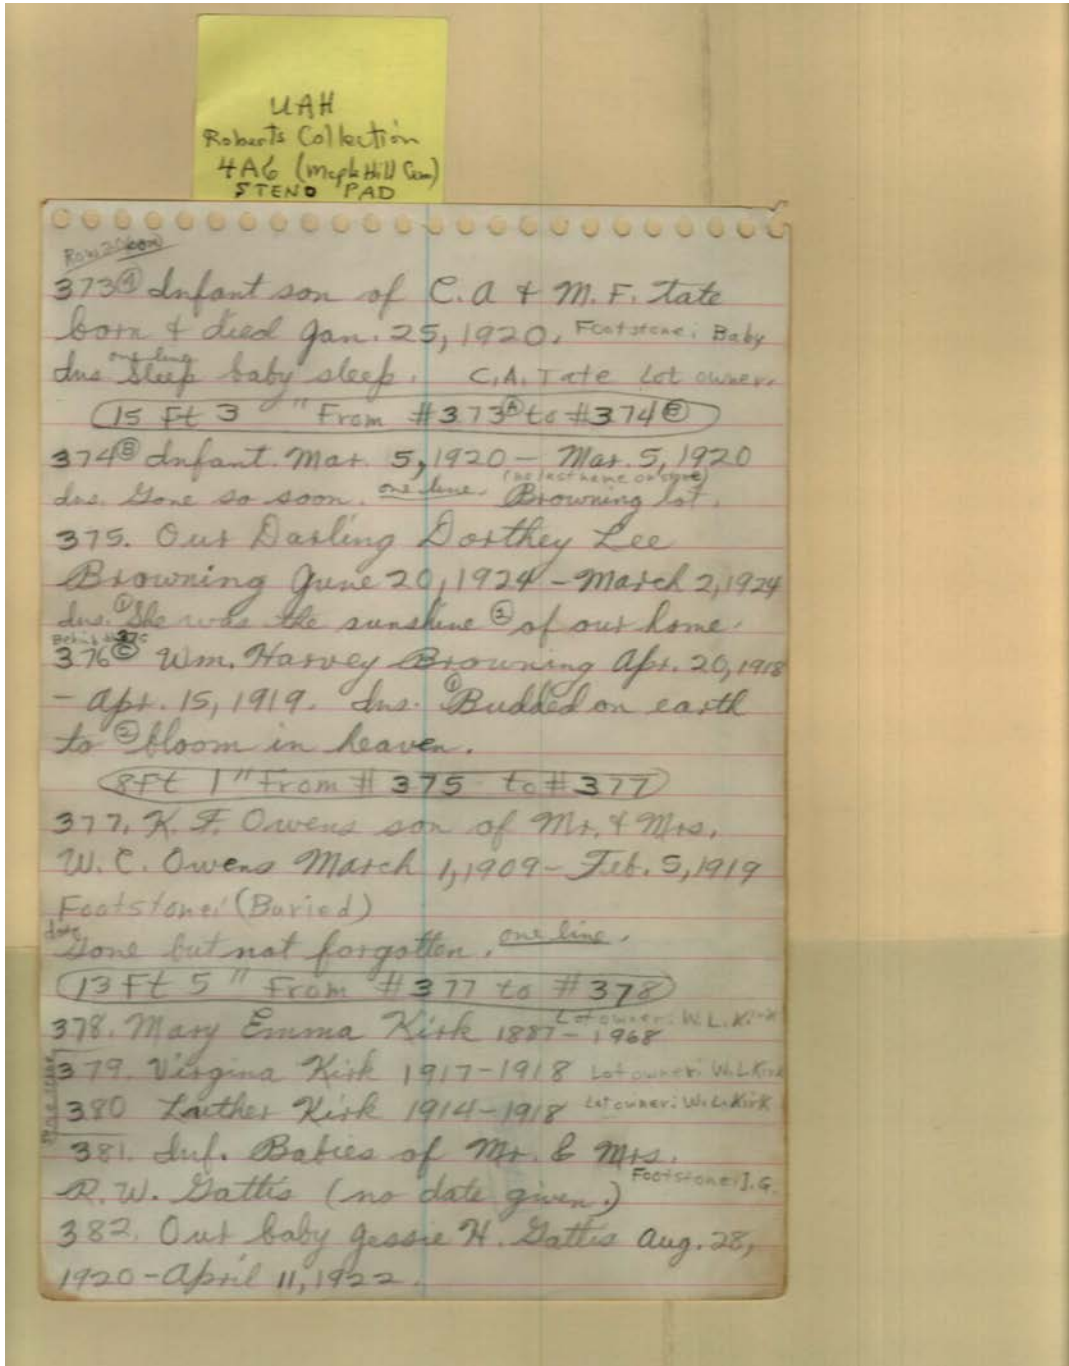 UAH
Roberts Collection
4A6 (Maple Hill Cem)
STENO PAD
Row 20
373 Ⓐ Infant son of C.A & M.F. Tate
born & died Jan. 25, 1920. Footstone: Baby
Ins one line Sleep baby sleep. C.A. Tate Lot owner.
15 Ft 3 " From #373 Ⓐ to #374 Ⓑ
374 Ⓑ Infant. Mar. 5, 1920 – Mar. 5, 1920
(no last name on stone)
Ins. Gone so soon. one line. Browning lot.
375. Our Darling Dorthey Lee
Browning June 20, 1924 – March 2, 1924
Ins. ① She was the sunshine ② of our home.
Behind #375
376 Ⓒ Wm. Harvey Browning Apr. 20, 1918
– Apr. 15, 1919. Ins. ① Budded on earth
to ② bloom in heaven.
8 Ft 1" From # 375 to # 377
377. K. F. Owens son of Mr. & Mrs.
W. C. Owens March 1, 1909 – Feb. 5, 1919
Footstone: (Buried)
Ins Gone but not forgotten. one line.
13 Ft 5 " From #377 to #378
Lot owner: W.L. Kirk
378. Mary Emma Kirk 1887–1968
379. Virgina Kirk 1917–1918 Lot owner: W.L Kirk
380 Luther Kirk 1914–1918 Lot owner: W.L. Kirk
381. Inf. Babies of Mr. & Mrs.
R. W. Gattis (no date given.) Footstone: I.G.
382. Our baby Jessie H. Gattis Aug. 28,
1920 – April 11, 1922.